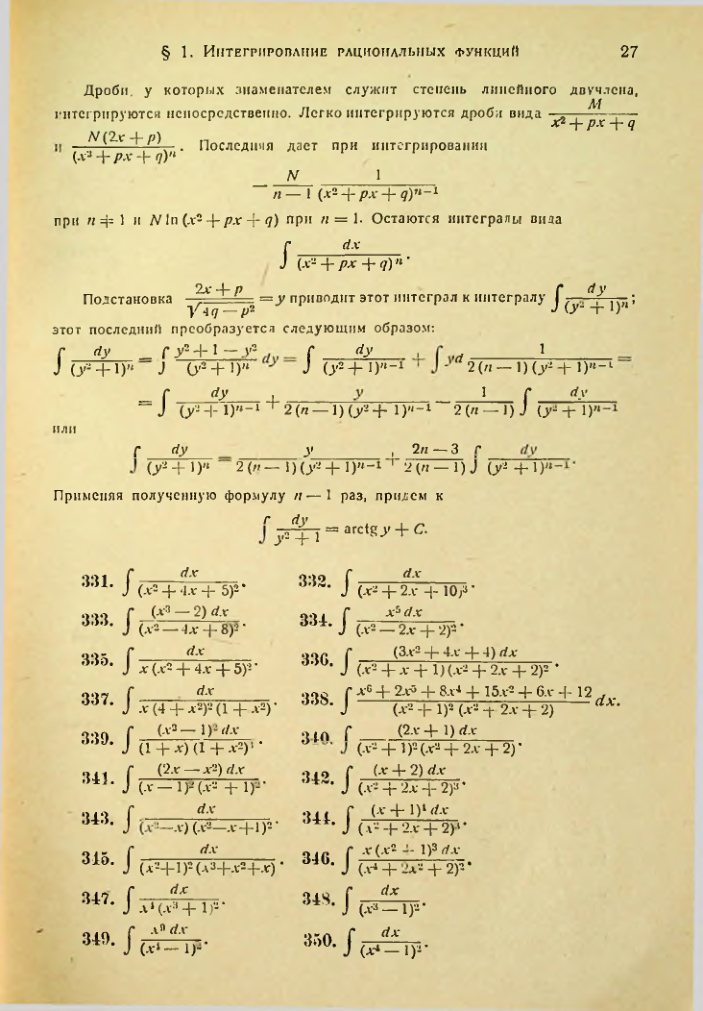 § 1. Интегрирование рациональных функций 27
Дроби, у которых знаменателем служит степень линейного двучлена,
интегрируются непосредственно. Легко интегрируются дроби вида M / (x² + px + q)
и N(2x + p) / (x² + px + q)ⁿ. Последняя дает при интегрировании
− N / (n − 1) · 1 / (x² + px + q)ⁿ⁻¹
при n ≠ 1 и N ln (x² + px + q) при n = 1. Остаются интегралы вида
∫ dx / (x² + px + q)ⁿ.
Подстановка (2x + p) / √(4q − p²) = y приводит этот интеграл к интегралу ∫ dy / (y² + 1)ⁿ;
этот последний преобразуется следующим образом:
∫ dy / (y² + 1)ⁿ = ∫ (y² + 1 − y²) / (y² + 1)ⁿ dy = ∫ dy / (y² + 1)ⁿ⁻¹ + ∫ yd 1 / (2(n − 1)(y² + 1)ⁿ⁻¹) =
= ∫ dy / (y² + 1)ⁿ⁻¹ + y / (2(n − 1)(y² + 1)ⁿ⁻¹) − 1 / (2(n − 1)) ∫ dy / (y² + 1)ⁿ⁻¹
или
∫ dy / (y² + 1)ⁿ = y / (2(n − 1)(y² + 1)ⁿ⁻¹) + (2n − 3) / (2(n − 1)) ∫ dy / (y² + 1)ⁿ⁻¹.
Применяя полученную формулу n — 1 раз, придем к
∫ dy / (y² + 1) = arctg y + C.
331. ∫ dx / (x² + 4x + 5)². 332. ∫ dx / (x² + 2x + 10)³.
333. ∫ (x³ − 2) dx / (x² − 4x + 8)². 334. ∫ x⁵ dx / (x² − 2x + 2)².
335. ∫ dx / (x (x² + 4x + 5)²). 336. ∫ (3x³ + 4x + 4) dx / ((x² + x + 1)(x² + 2x + 2)²).
337. ∫ dx / (x (4 + x²)² (1 + x²)). 338. ∫ (x⁶ + 2x⁵ + 8x⁴ + 15x² + 6x + 12) / ((x² + 1)² (x² + 2x + 2)) dx.
339. ∫ (x² − 1)² dx / ((1 + x)(1 + x²)³). 340. ∫ (2x + 1) dx / ((x² + 1)² (x² + 2x + 2)).
341. ∫ (2x − x²) dx / ((x − 1)² (x² + 1)²). 342. ∫ (x + 2) dx / (x² + 2x + 2)³.
343. ∫ dx / ((x² − x)(x² − x + 1)²). 344. ∫ (x + 1)⁴ dx / (x² + 2x + 2)³.
345. ∫ dx / ((x² + 1)² (x³ + x² + x)). 346. ∫ x (x² + 1)³ dx / (x⁴ + 2x² + 2)².
347. ∫ dx / (x⁴ (x³ + 1)²). 348. ∫ dx / (x³ − 1)².
349. ∫ x⁹ dx / (x⁴ − 1)². 350. ∫ dx / (x⁴ − 1)².